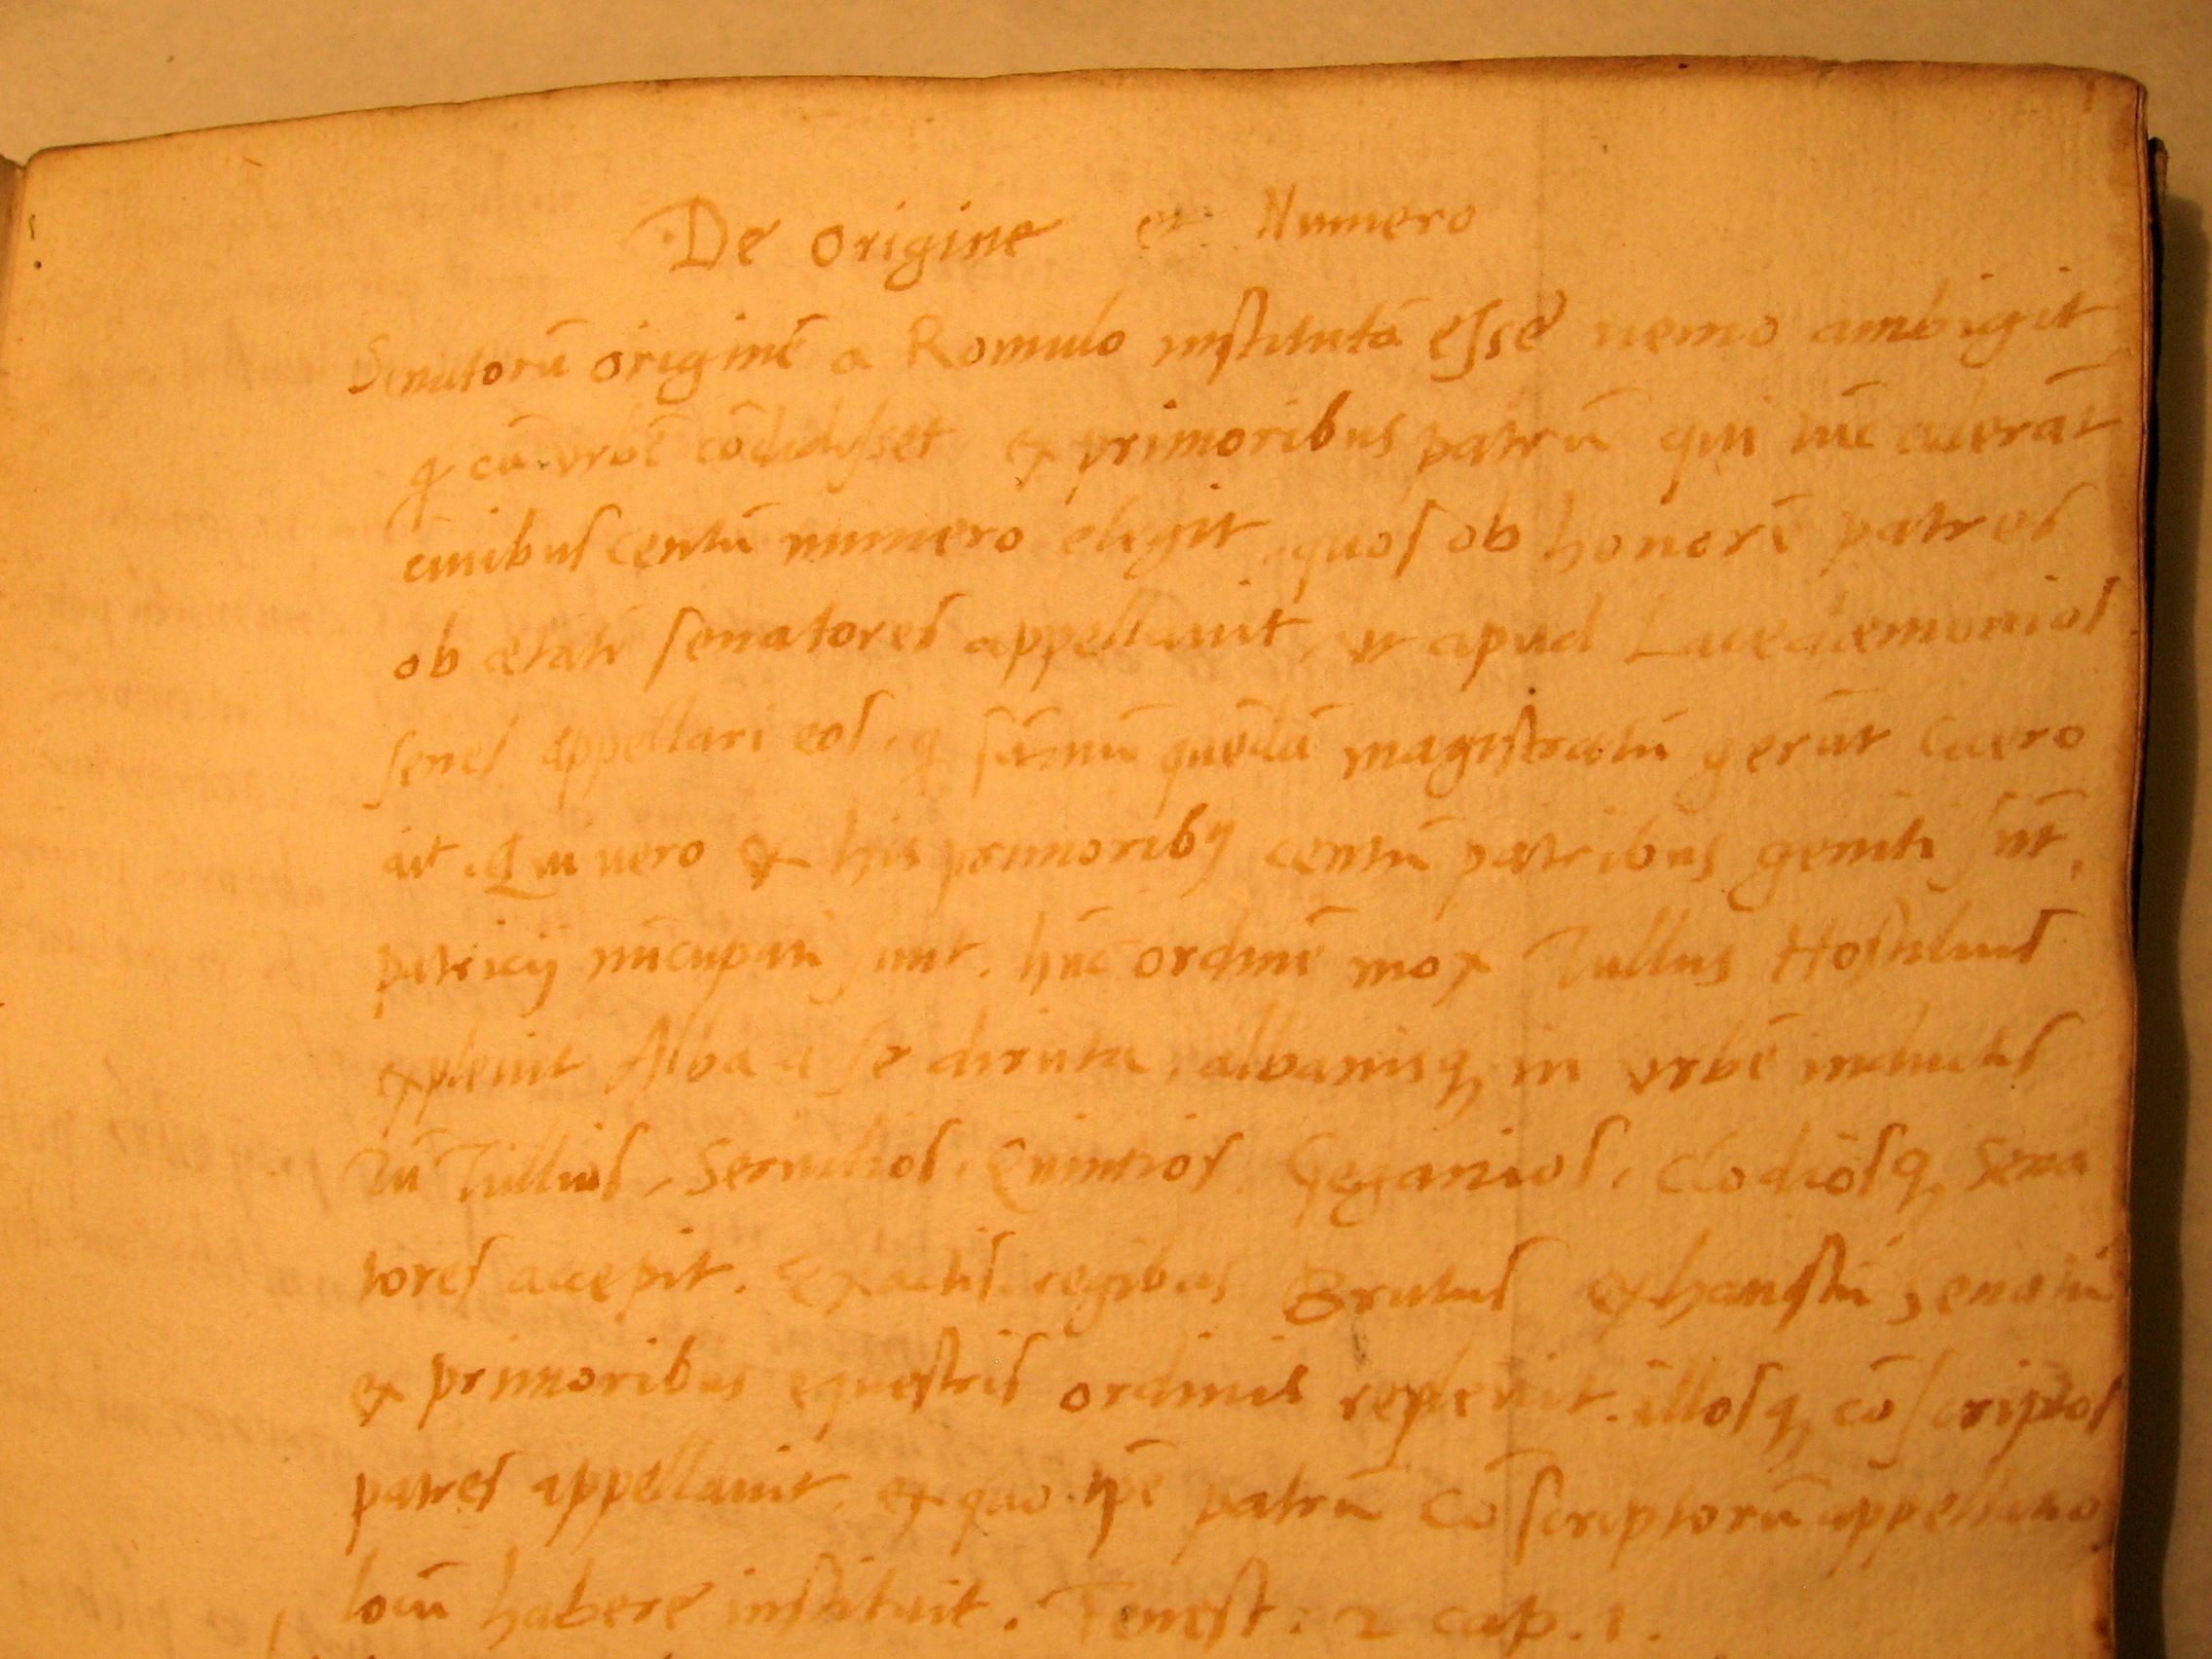 De origine et Numero
Senatorū originē a Romulo institutā esse nemo ambigit
q cū urbē cōdidisset ex primoribus patrū qui tūc aderāt
ciuibus centū numero elegit, quos ob honorē patres
ob etatē senatores appellauit, ut apud Lacedemonios
senes appellari eos, q sūmū quēdā magistratū gerūt Cicero
ait. Qui vero ex his primoribꝰ centū patribus geniti sūt,
patricij nūcupati sunt. hūc ordinē mox Tullus Hostilius
expleuit Alba a se diruta, albanisq, in urbē inductis
Tū Tullios, Seruilios, Quintios, Geganios, Clodiosq, sena
tores accepit. Exactis regibus Brutus exhaustū senatū
ex primoribus equestris ordinis repleuit. illosq, cōscriptos
patres appellauit, ex quo patrū Cōscriptorū appellatio
locū habere instituit. Fenest. 2 cap. 1.